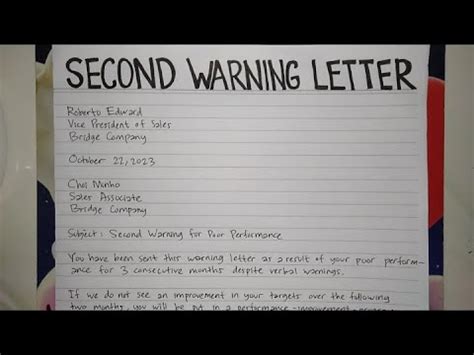 SECOND WARNING LETTER
Roberto Edward
Vice President of Sales
Bridge Company
October 22, 2023
Choi Minho
Sales Associate
Bridge Company
Subject: Second Warning for Poor Performance
You have been sent this warning letter as a result of your poor perform-
ance for 3 consecutive months despite verbal warnings.
If we do not see an improvement in your targets over the following
two months, you will be put in a performance-improvement-